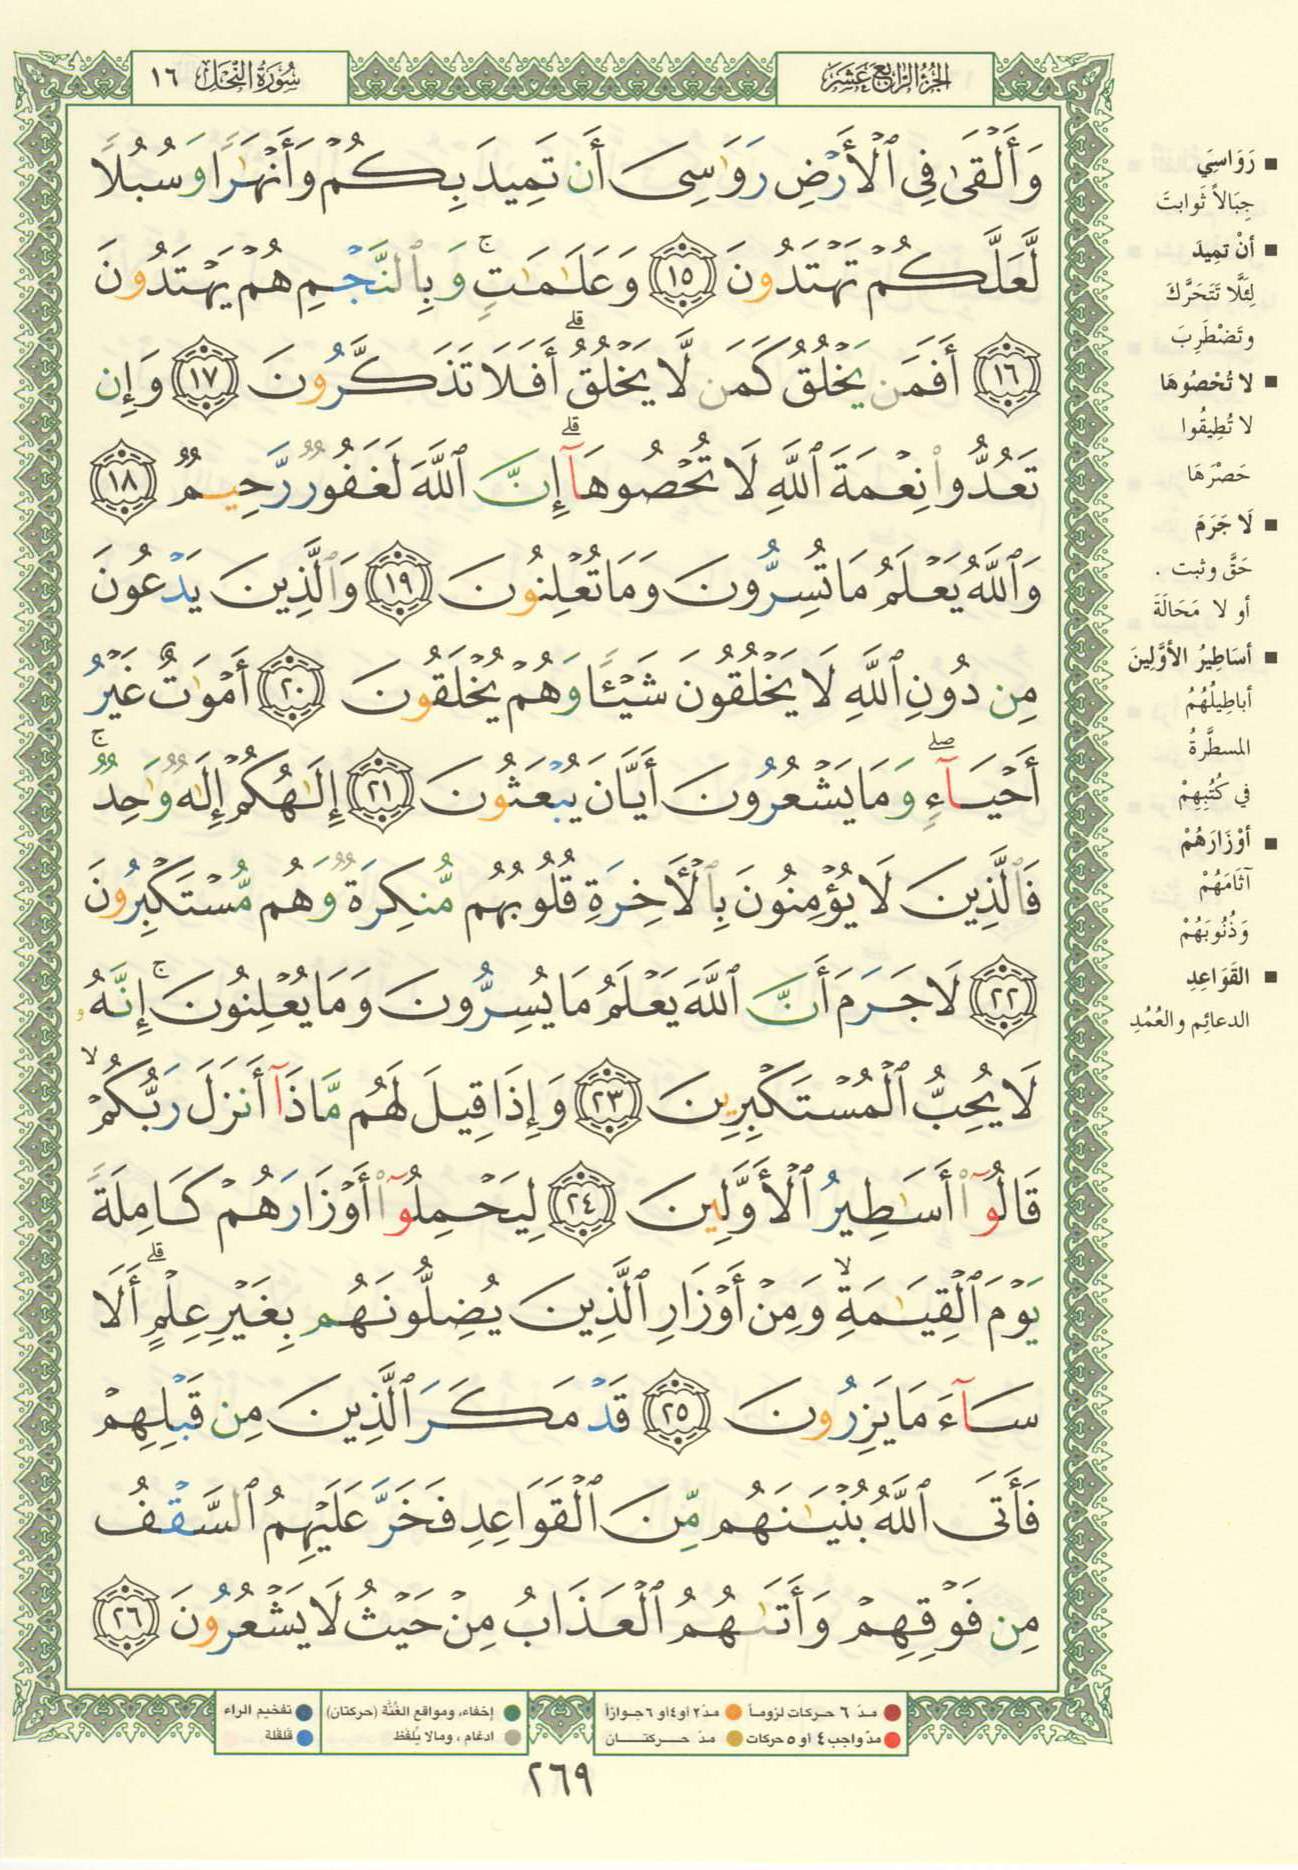 الجزء الرابع عشر
سورة النحل ١٦
وَأَلْقَىٰ فِي ٱلْأَرْضِ رَوَٰسِيَ أَن تَمِيدَ بِكُمْ وَأَنْهَٰرًا وَسُبُلًا
لَّعَلَّكُمْ تَهْتَدُونَ ١٥ وَعَلَٰمَٰتٍ ۚ وَبِٱلنَّجْمِ هُمْ يَهْتَدُونَ
١٦ أَفَمَن يَخْلُقُ كَمَن لَّا يَخْلُقُ ۗ أَفَلَا تَذَكَّرُونَ ١٧ وَإِن
تَعُدُّوا۟ نِعْمَةَ ٱللَّهِ لَا تُحْصُوهَآ ۗ إِنَّ ٱللَّهَ لَغَفُورٌ رَّحِيمٌ ١٨
وَٱللَّهُ يَعْلَمُ مَا تُسِرُّونَ وَمَا تُعْلِنُونَ ١٩ وَٱلَّذِينَ يَدْعُونَ
مِن دُونِ ٱللَّهِ لَا يَخْلُقُونَ شَيْـًٔا وَهُمْ يُخْلَقُونَ ٢٠ أَمْوَٰتٌ غَيْرُ
أَحْيَآءٍ ۖ وَمَا يَشْعُرُونَ أَيَّانَ يُبْعَثُونَ ٢١ إِلَٰهُكُمْ إِلَٰهٌ وَٰحِدٌ ۚ
فَٱلَّذِينَ لَا يُؤْمِنُونَ بِٱلْأَخِرَةِ قُلُوبُهُم مُّنكِرَةٌ وَهُم مُّسْتَكْبِرُونَ
٢٢ لَا جَرَمَ أَنَّ ٱللَّهَ يَعْلَمُ مَا يُسِرُّونَ وَمَا يُعْلِنُونَ ۚ إِنَّهُۥ
لَا يُحِبُّ ٱلْمُسْتَكْبِرِينَ ٢٣ وَإِذَا قِيلَ لَهُم مَّاذَآ أَنزَلَ رَبُّكُمْ ۙ
قَالُوٓا۟ أَسَٰطِيرُ ٱلْأَوَّلِينَ ٢٤ لِيَحْمِلُوٓا۟ أَوْزَارَهُمْ كَامِلَةً
يَوْمَ ٱلْقِيَٰمَةِ ۙ وَمِنْ أَوْزَارِ ٱلَّذِينَ يُضِلُّونَهُم بِغَيْرِ عِلْمٍ ۗ أَلَا
سَآءَ مَا يَزِرُونَ ٢٥ قَدْ مَكَرَ ٱلَّذِينَ مِن قَبْلِهِمْ
فَأَتَى ٱللَّهُ بُنْيَٰنَهُم مِّنَ ٱلْقَوَاعِدِ فَخَرَّ عَلَيْهِمُ ٱلسَّقْفُ
مِن فَوْقِهِمْ وَأَتَىٰهُمُ ٱلْعَذَابُ مِنْ حَيْثُ لَا يَشْعُرُونَ ٢٦
■ رَوَاسِيَ
جِبَالاً ثَوابتَ
■ أنْ تمِيدَ
لِئَلَّا تَتَحَرَّكَ
وتَضْطَرِبَ
■ لا تُحْصُوهَا
لا تُطِيقُوا
حَصْرَهَا
■ لَا جَرَمَ
حَقَّ وثبت .
أو لا مَحَالَةَ
■ أسَاطِيرُ الأوَّلِينَ
أباطِيلُهُمُ
المسطَّرةُ
في كُتُبِهِمْ
■ أوْزَارَهُمْ
آثَامَهُمْ
وَذُنُوبَهُمْ
■ القَوَاعِدِ
الدعائِم والعُمُدِ
مدّ ٦ حركات لزوماً مدّ ٢ أو ٤ أو ٦ جوازاً
مدّ واجب ٤ أو ٥ حركات مدّ حركتان
إخفاء، ومواقع الغُنَّة (حركتان) تفخيم الراء
ادغام ، ومالا يُلفظ قلقلة
٢٦٩